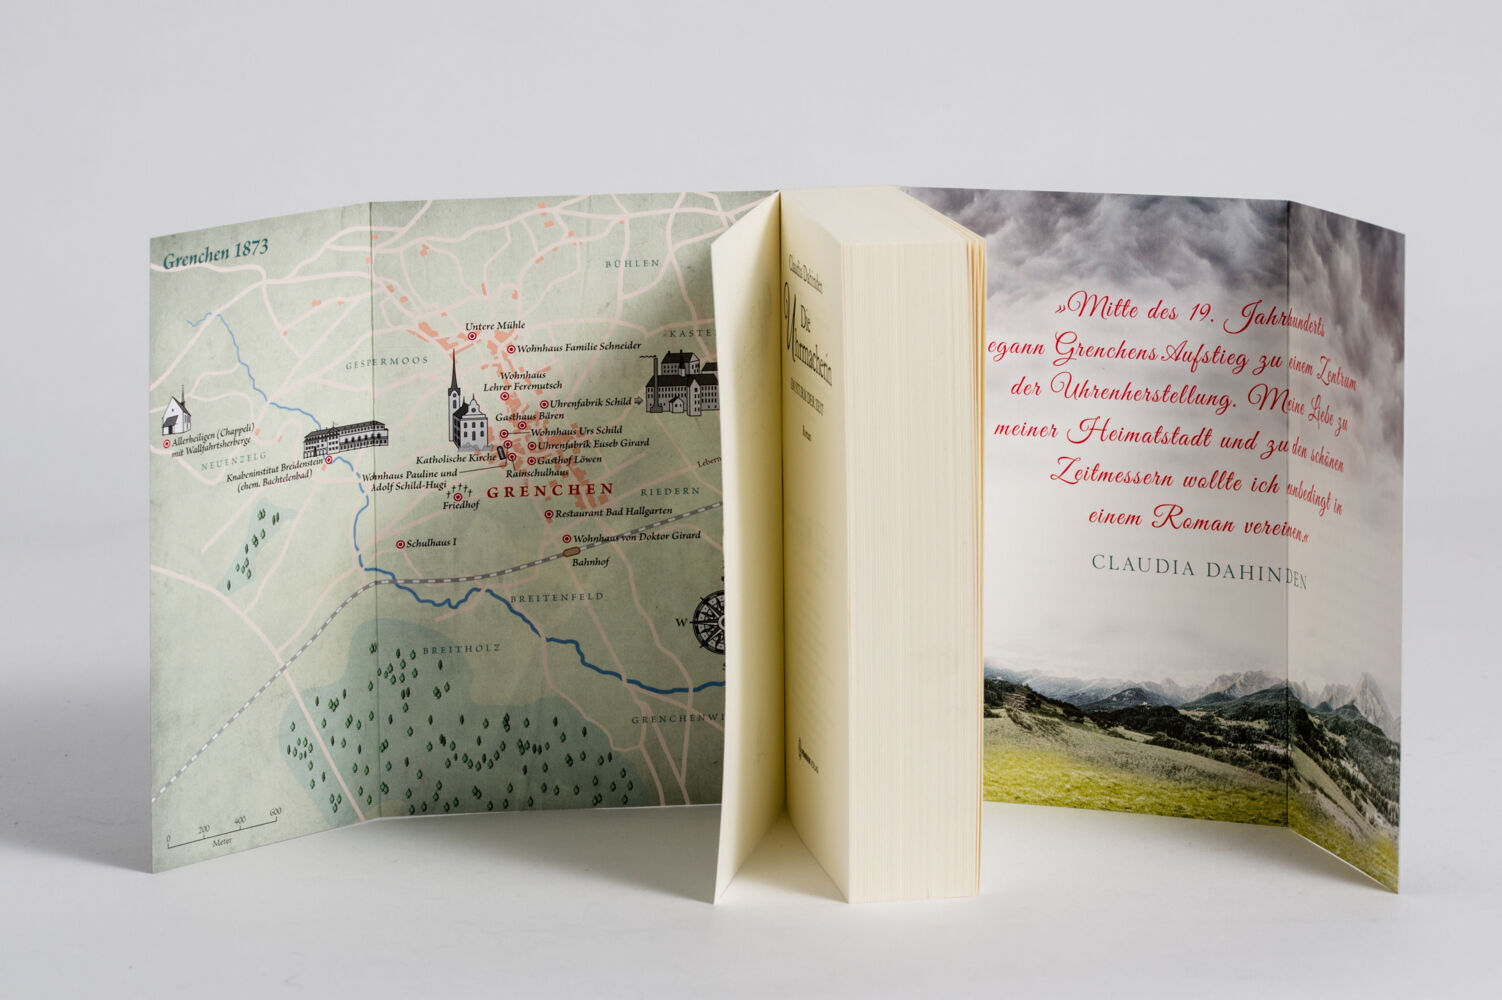 Grenchen 1873
BÜHLEN
Untere Mühle
Wohnhaus Familie Schneider
KASTE
GESPERMOOS
Wohnhaus
Lehrer Feremutsch
Uhrenfabrik Schild
Gasthaus Bären
Wohnhaus Urs Schild
Allerheiligen (Chappeli)
mit Wallfahrtsherberge
Uhrenfabrik Euseb Girard
NEUENZELG
Katholische Kirche
Gasthof Löwen
Knabeninstitut Breidenstein
(ehem. Bachtelenbad)
Rainschulhaus
Wohnhaus Pauline und
Adolf Schild-Hugi
GRENCHEN
RIEDERN
Lebern
Friedhof
Restaurant Bad Hallgarten
Schulhaus I
Wohnhaus von Doktor Girard
Bahnhof
BREITENFELD
W
S
BREITHOLZ
GRENCHENWI
0 200 400 600
Meter
Claudia Dahinden
Die
Uhrmacherin
IM STURM DER ZEIT
Roman
VERLAG
»Mitte des 19. Jahrhunderts
egann Grenchens Aufstieg zu einem Zentrum
der Uhrenherstellung. Meine Liebe zu
meiner Heimatstadt und zu den schönen
Zeitmessern wollte ich unbedingt in
einem Roman vereinen.«
CLAUDIA DAHINDEN